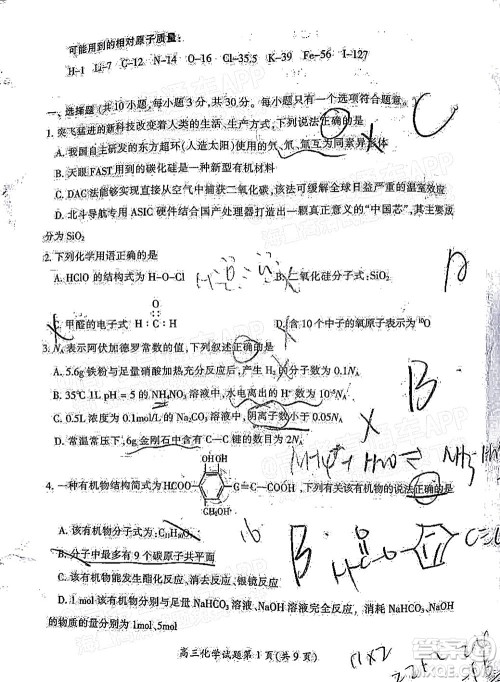 可能用到的相对原子质量：
H-1 Li-7 C-12 N-14 O-16 Cl-35.5 K-39 Fe-56 I-127
一、选择题（共10小题，每小题3分，共30分。每小题只有一个选项符合题意。）
1. 突飞猛进的新科技改变着人类的生活、生产方式，下列说法正确的是
C
A. 我国自主研发的东方超环（人造太阳）使用的氕、氘、氚互为同素异形体
B. 天眼FAST用到的碳化硅是一种新型有机材料
C. DAC法能够实现直接从空气中捕获二氧化碳，该法可缓解全球日益严重的温室效应
D. 北斗导航专用ASIC硬件结合国产处理器打造出一颗真正意义的“中国芯”，其主要成分
为SiO₂
2. 下列化学用语正确的是
A. HClO的结构式为 H-O-Cl
B. 二氧化硅分子式：SiO₂
D
C. 甲醛的电子式
O
H : C : H
D. 含10个中子的氧原子表示为
3. Nₐ表示阿伏加德罗常数的值，下列叙述正确的是
A. 5.6g铁粉与足量稀硝酸加热充分反应后，产生H₂的分子数为0.1Nₐ
B. 35℃ 1L pH = 5的NH₄NO₃溶液中，水电离出的H⁺数为10⁻⁵Nₐ
B
C. 0.5L浓度为0.1mol/L的Na₂CO₃溶液中，阴离子数小于0.05Nₐ
D. 常温常压下，6g金刚石中含有C—C键的数目为2Nₐ
NH₄⁺ + H₂O ⇌ NH₃·H
4. 一种有机物结构简式为
HCOO
CH₂OH
C=C—COOH
CH₂OH
，下列有关该有机物的说法正确的是
A. 该有机物分子式为：
B. 分子中最多有9个碳原子共平面
B
C. 该有机物能发生酯化反应、消去反应、银镜反应
D. 1 mol该有机物分别与足量NaHCO₃溶液、NaOH溶液完全反应，消耗NaHCO₃、NaOH
的物质的量分别为1mol、5mol
高三化学试题第1页(共9页)